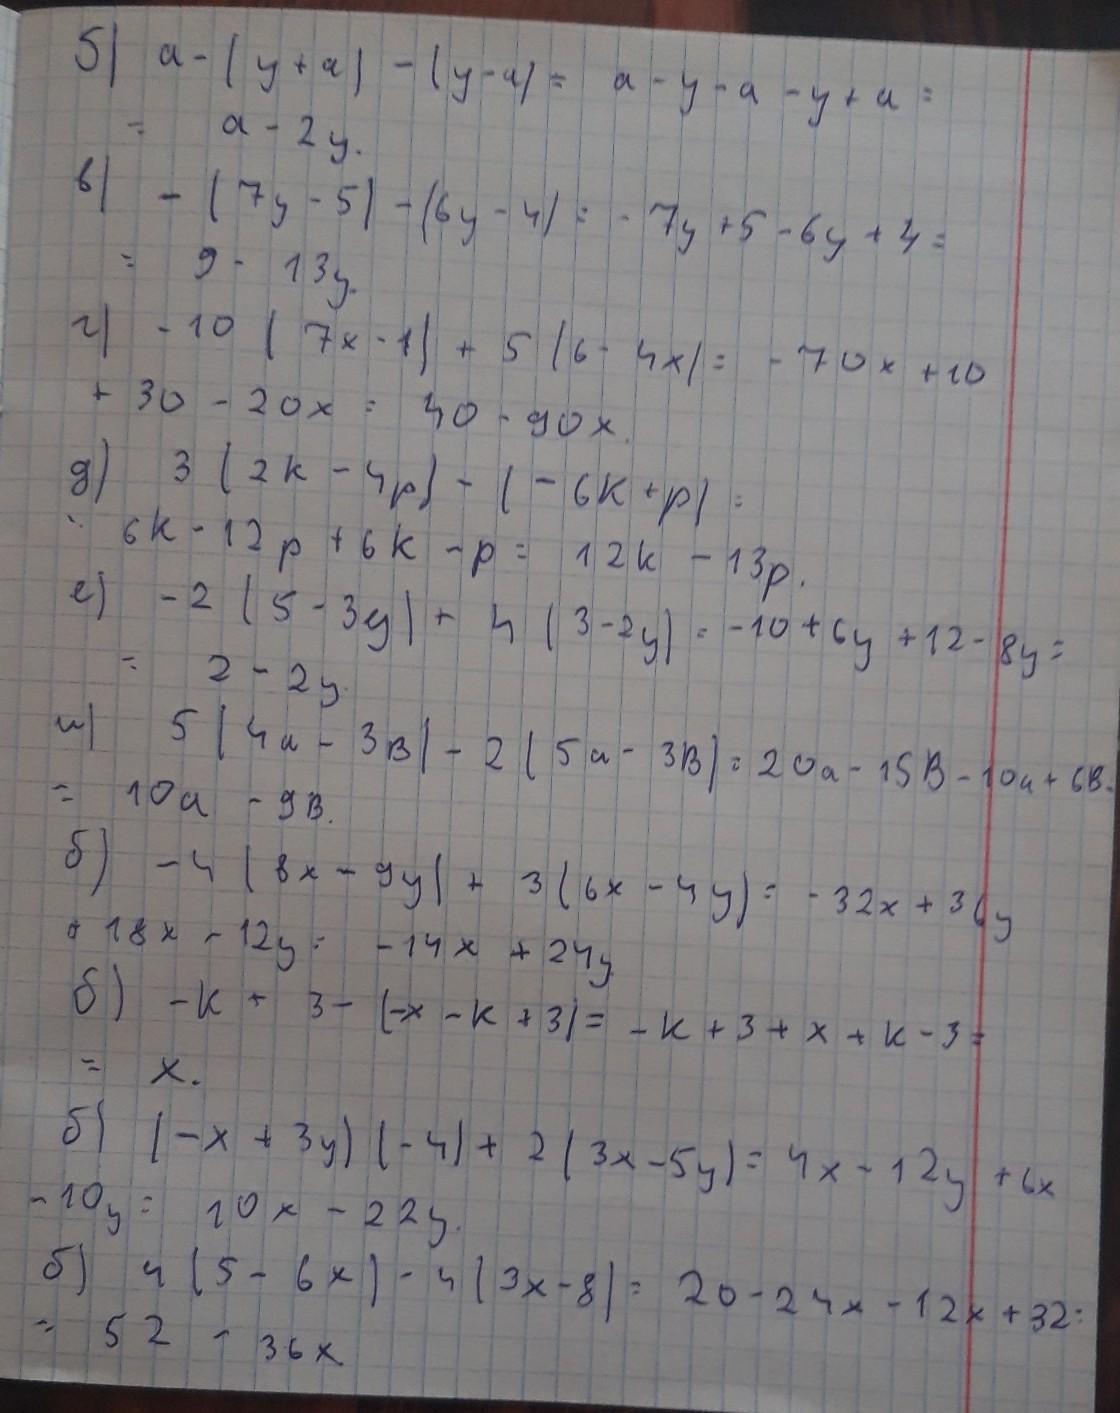 б) a - (y + a) - (y - a) = a - y - a - y + a =
= a - 2y.
в) - (7y - 5) - (6y - 4) = - 7y + 5 - 6y + 4 =
= 9 - 13y.
г) - 10 (7x - 1) + 5 (6 - 4x) = - 70x + 10
+ 30 - 20x = 40 - 90x.
д) 3 (2k - 4p) - (- 6k + p) =
= 6k - 12p + 6k - p = 12k - 13p.
е) - 2 (5 - 3y) + 4 (3 - 2y) = - 10 + 6y + 12 - 8y =
= 2 - 2y.
и) 5 (4a - 3в) - 2 (5a - 3в) = 20a - 15в - 10a + 6в =
= 10a - 9в.
б) - 4 (8x - 9y) + 3 (6x - 4y) = - 32x + 36y
+ 18x - 12y = - 14x + 24y
б) - k + 3 - (-x - k + 3) = - k + 3 + x + k - 3 =
= x.
б) (- x + 3y) (- 4) + 2 (3x - 5y) = 4x - 12y + 6x
- 10y = 10x - 22y.
б) 4 (5 - 6x) - 4 (3x - 8) = 20 - 24x - 12x + 32 =
= 52 - 36x